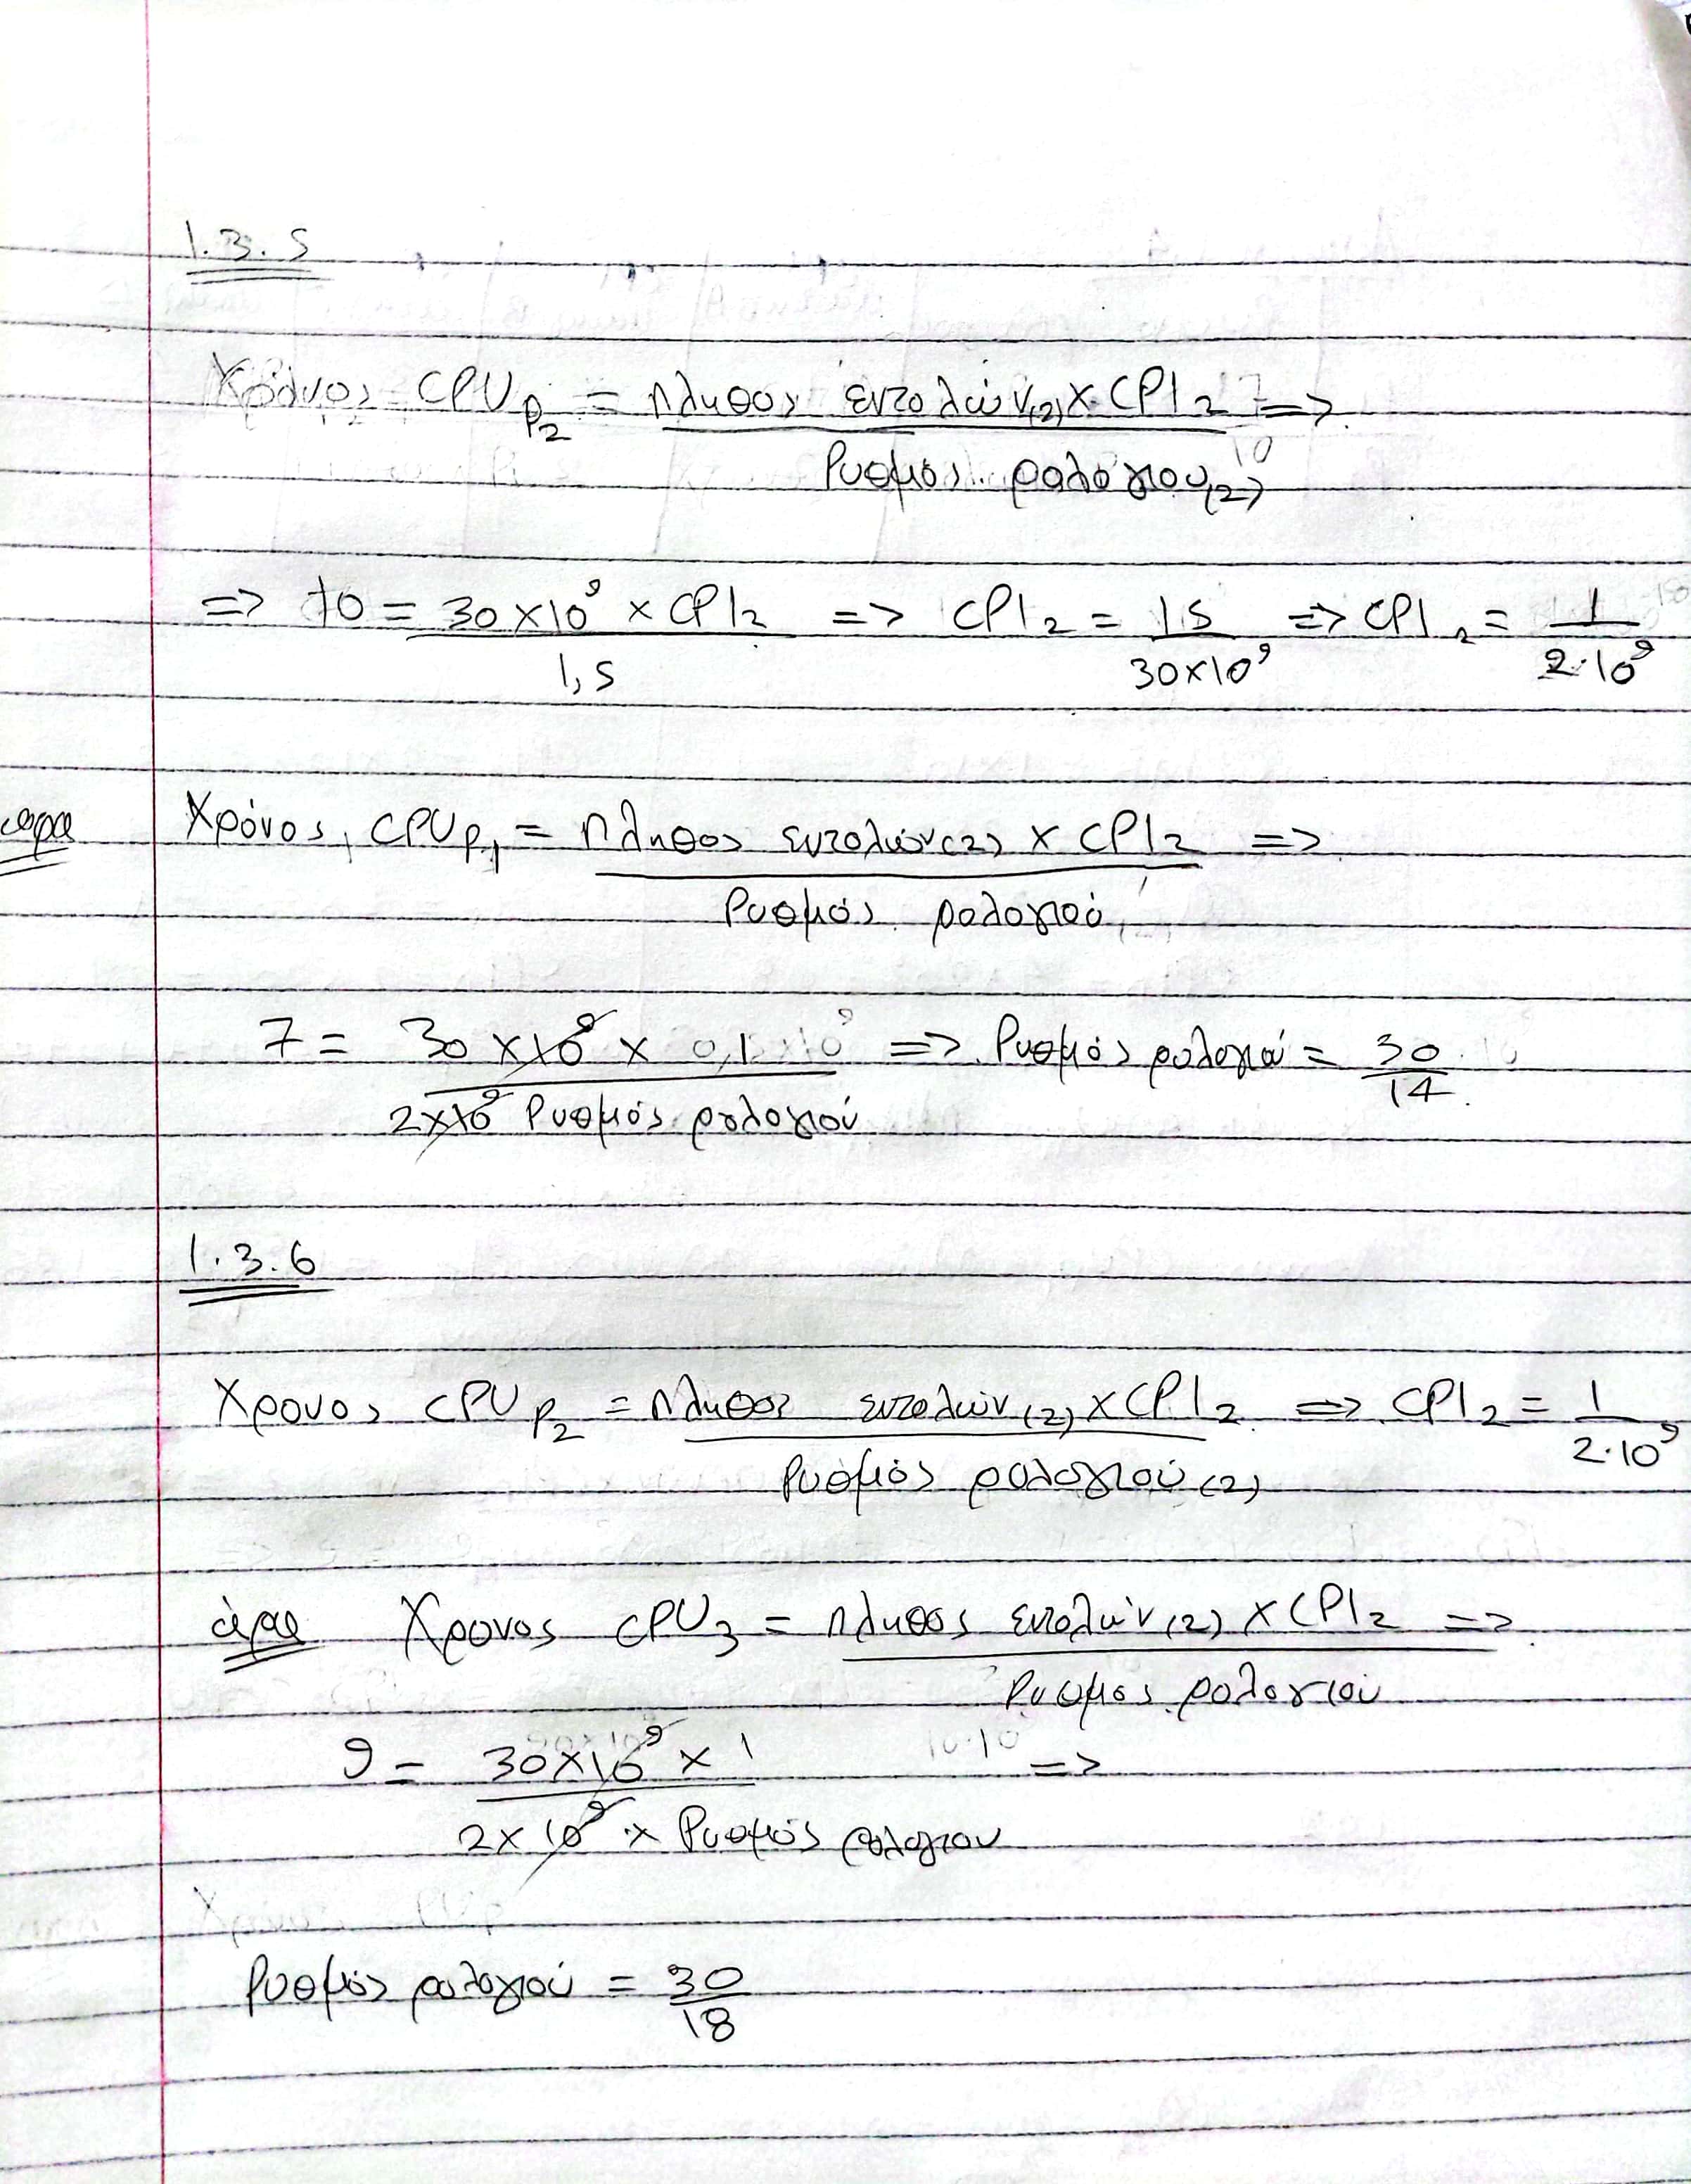 1.3.5
Χρόνος CPU P2 = πλήθος εντολών(2) x CPI2 =>
Ρυθμός ρολόγιου(2)
=> 10 = 30 x 10^9 x CPI2 / 1,5 => CPI2 = 15 / 30x10^9 => CPI2 = 1 / 2·10^9
άρα Χρόνος CPU P1 = πλήθος εντολών(2) x CPI2 =>
Ρυθμός ρολογιού
7 = 30 x 10^9 x 0,1 / 2x10^9 Ρυθμός ρολογιού => Ρυθμός ρολογιού = 30 / 14
1.3.6
Χρονος CPU P2 = πλήθος εντολών(2) x CPI2 => CPI2 = 1 / 2·10^9
Ρυθμός ρολογιού(2)
άρα Χρονος CPU3 = πλήθος εντολών(2) x CPI2 =>
Ρυθμος ρολογιού
9 = 30x10^9 x 1 / 2x10^9 x Ρυθμός ρολογιου =>
Ρυθμός ρολογιού = 30 / 18